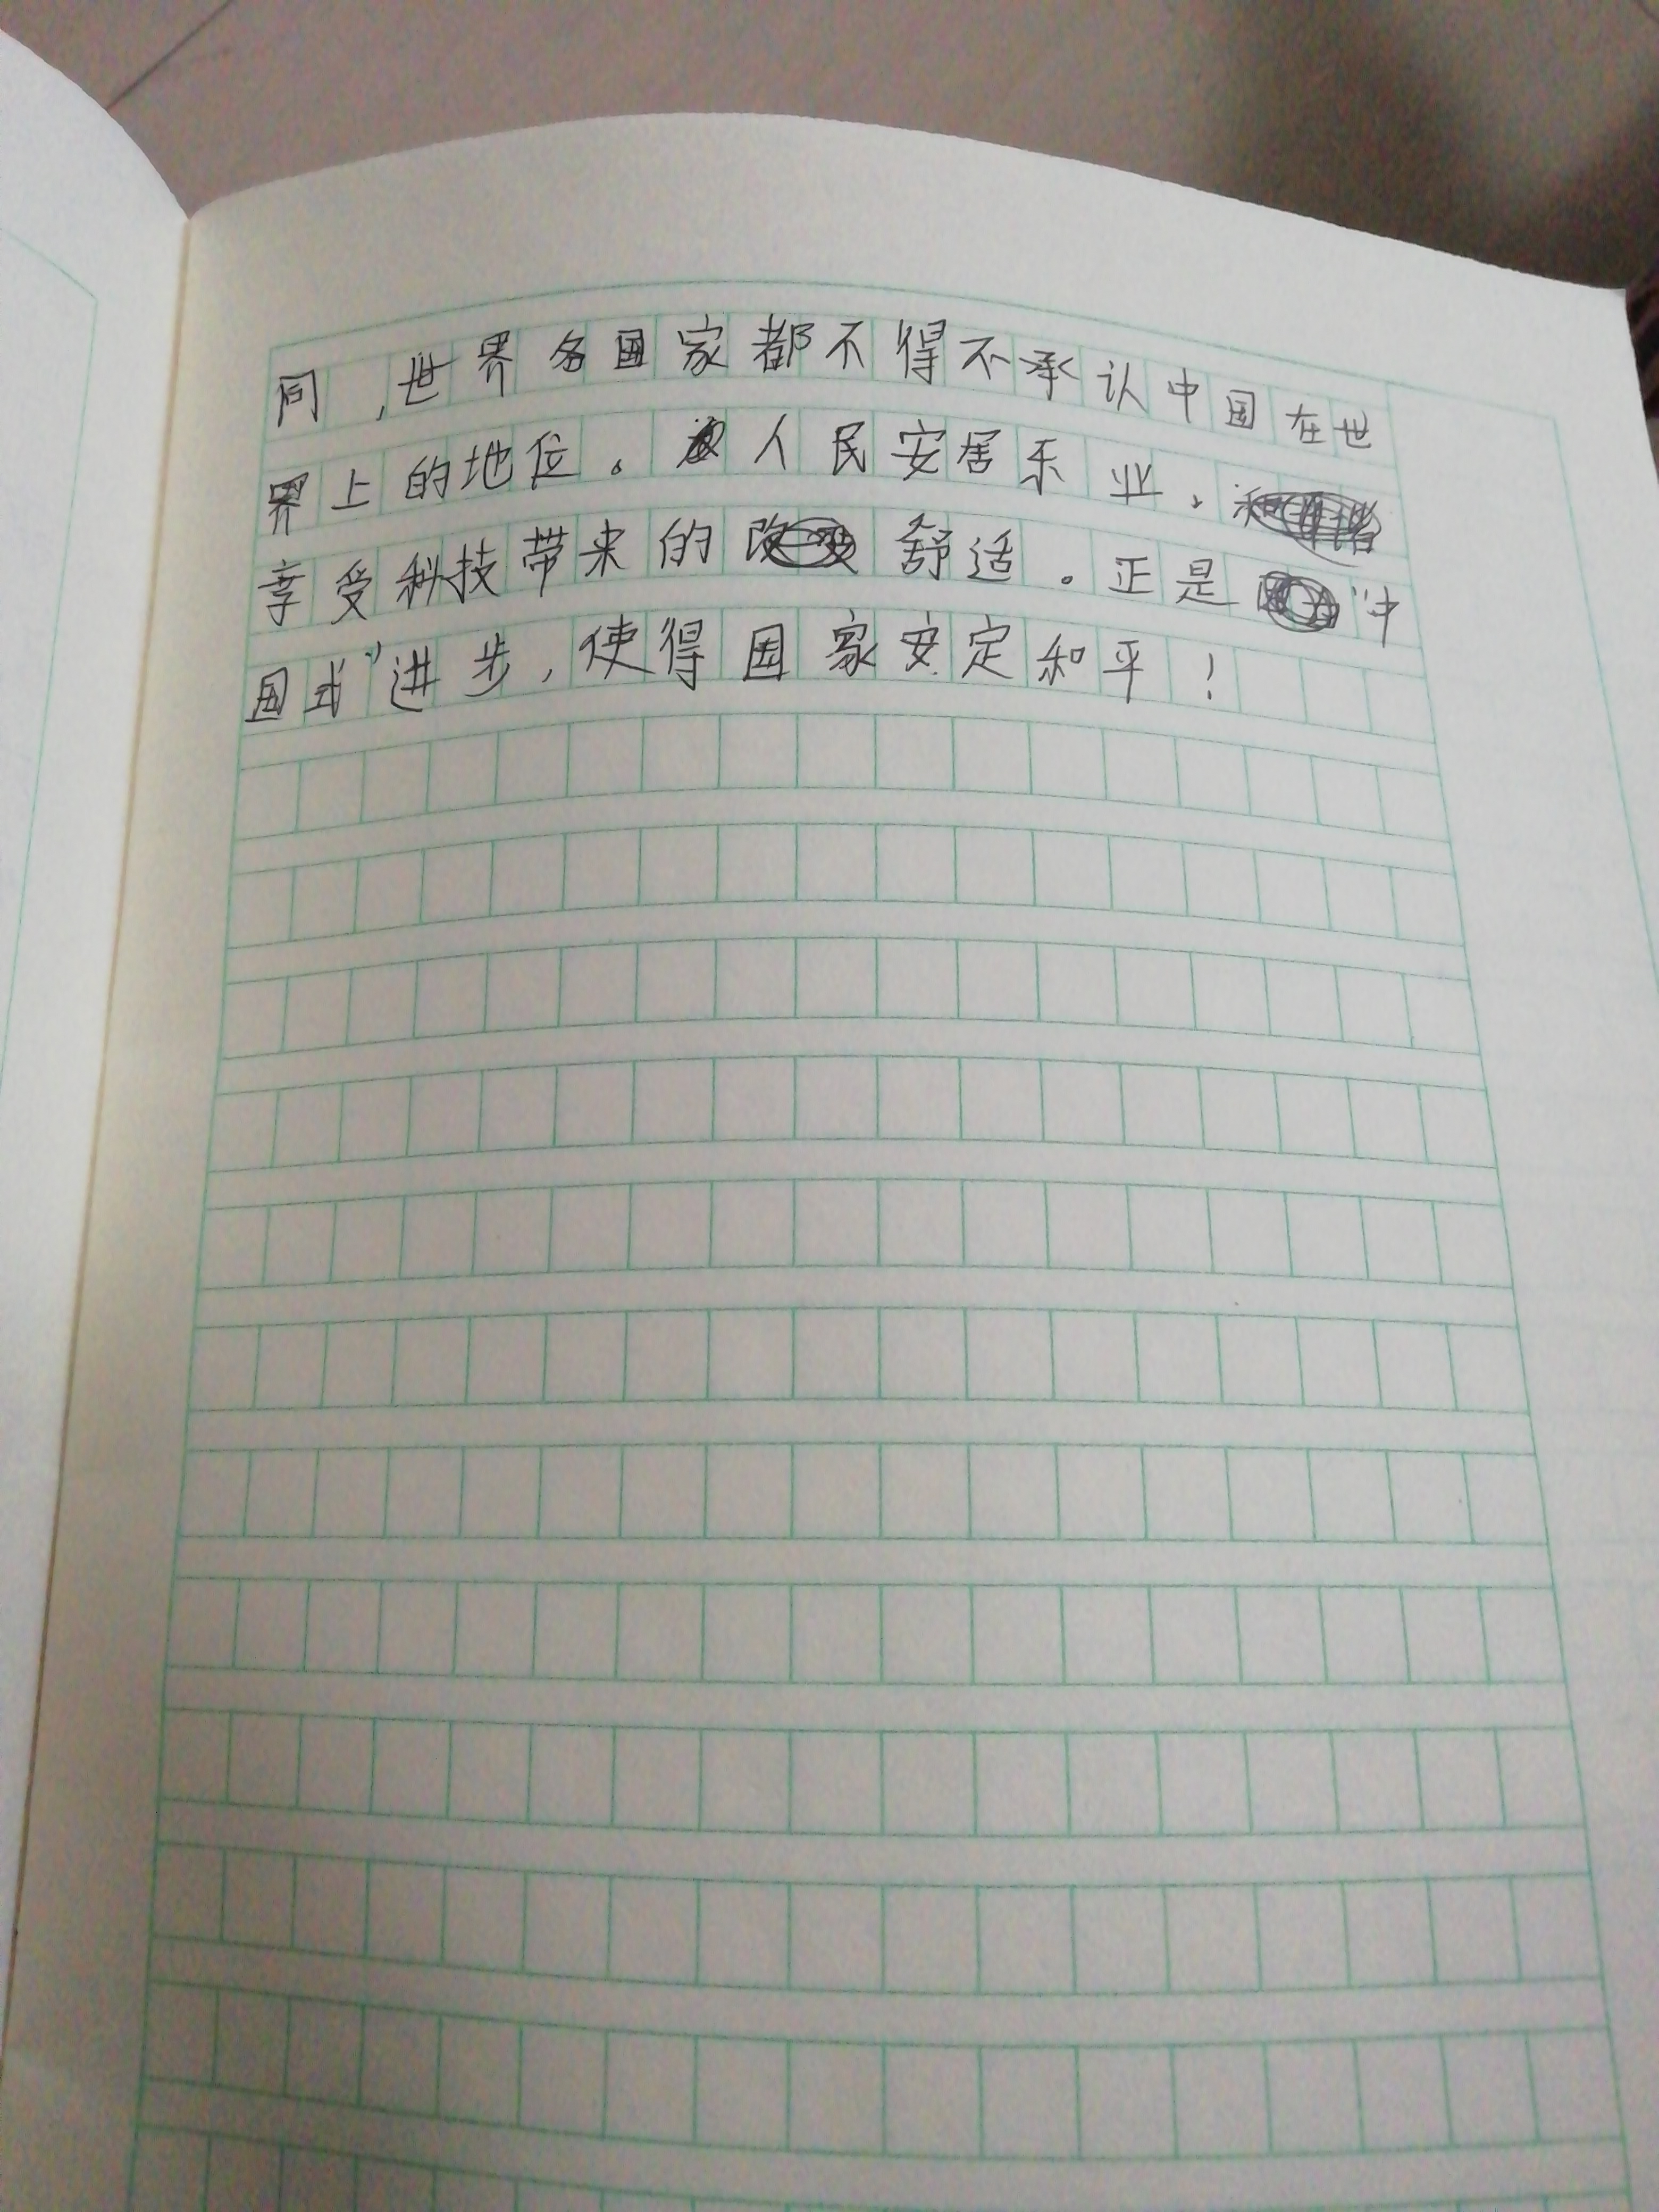 同，世界各国家都不得不承认中国在世
界上的地位。人民安居乐业，
享受科技带来的舒适。正是“中
国式”进步，使得国家安定和平！